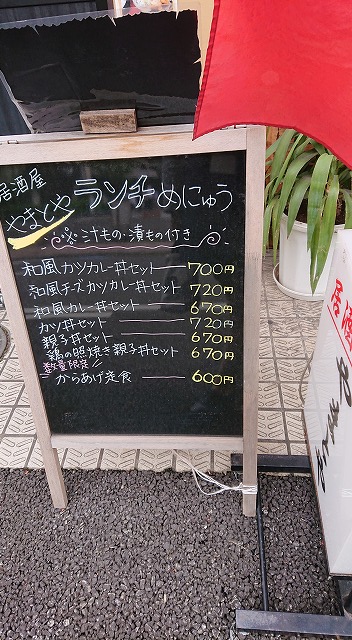 居酒屋
やまとや ランチめにゅう
汁もの・漬もの付き
和風カツカレー丼セット 700円
和風チーズカツカレー丼セット 720円
和風カレー丼セット 670円
カツ丼セット 720円
親子丼セット 670円
鶏の照焼き親子丼セット 670円
数量限定!!
からあげ定食 600円
居酒